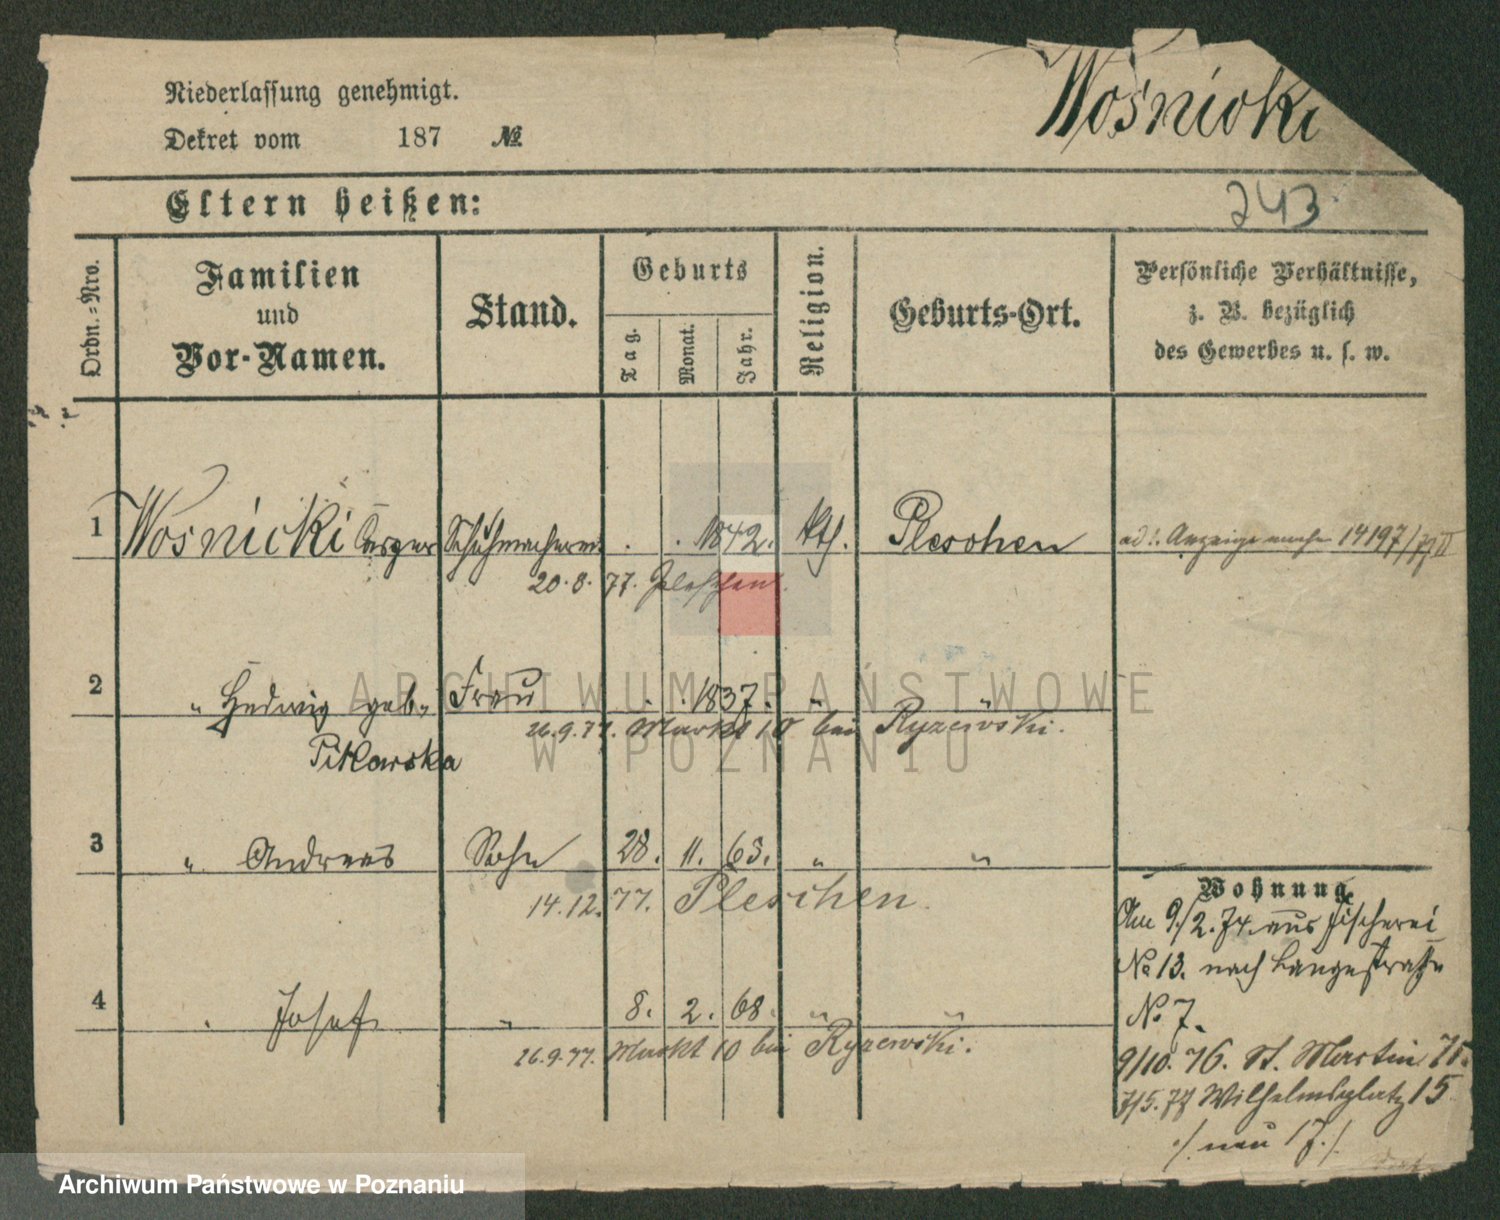 Niederlassung genehmigt.
Dekret vom 187 №
Wośnicki
243
Eltern heißen:
Ordn.-Nro.
Familien
und
Vor-Namen.
Stand.
Geburts
Tag.
Monat.
Jahr.
Religion.
Geburts-Ort.
Persönliche Verhältnisse,
z. B. bezüglich
des Gewerbes u. s. w.
1 Wosnicki Schuhmacher . . 1842. kth. Pleschen 14197/77
20.8.77. Pleschen.
2 " Hedwig geb. Frau . . 1837. " "
26.9.77. Markt 10 bei Ryzewski.
Pitlarska
3 " Andreas Sohn 28. 11. 65. " "
14.12.77. Pleschen.
4 " Josef " 8. 2. 68. " "
26.9.77. Markt 10 bei Ryzewski.
Wohnung
Am 9/2. 74. aus Fischerei
No 13. nach Langestraße
No 7.
9/10. 76. St. Martin 75.
7/5. 77 Wilhelmsplatz 15
./. neu 17./.
ARCHIWUM PAŃSTWOWE
W POZNANIU
Archiwum Państwowe w Poznaniu